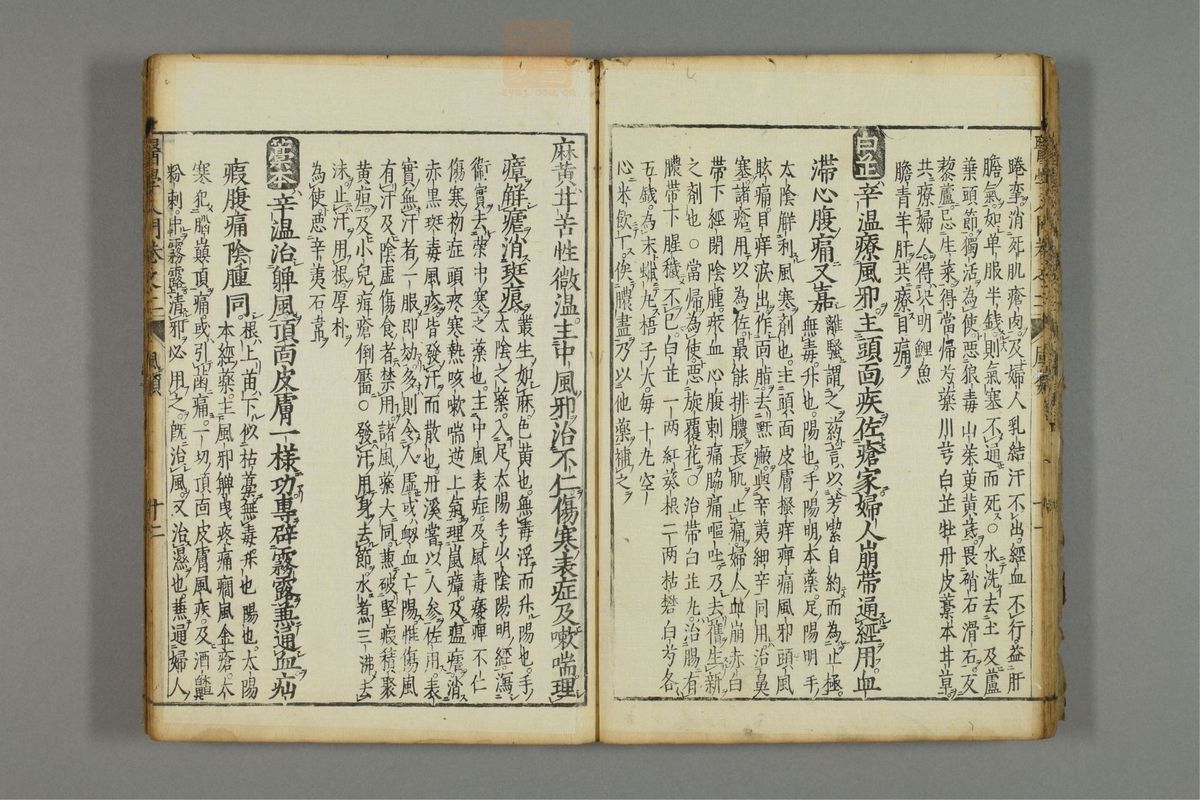 腃攣消死肌瘡肉及婦人乳結汗不出經血不行益肝
膽氣如单服半錢則氣塞不通而死○水洗去土及蘆
葉頭節獨活為使惡狼毒山茱萸黄芪畏硝石滑石反
藜蘆忌生菜得當帰芍藥川芎白芷牡丹皮藁本甘草
共療婦人得决明鯉魚
膽青羊肝共療目痛
白芷辛温療風邪主頭面疾佐瘡家婦人崩带通經用血
滞心腹痛又嘉
離騷謂之葯言以芳紫自約而為止極
無毒升也陽也手陽明本薬足陽明手
太陰解利風寒剤也主頭面皮膚搔痒痺痛風邪頭風
眩痛目痒淚出作面脂去䵟瘢與辛夷細辛同用治鼻
塞諸瘡用以為佐最能排膿長肌止痛婦人血崩赤白
带下經閉陰腫瘀血心腹刺痛脇痛嘔吐乃去舊生新
之剤也○當帰為使惡旋覆花○治带白芷丸治腸有
膿带下腥穢不已白芷一两紅葵根二两枯礬白芍各
五銭為末蠟丸梧子大每十九空
心米飲下俟膿盡乃以他藥補之
麻黄甘苦性微温主中風邪治不仁傷寒表症及嗽喘理
瘴鮮瘧消斑痕
叢生如麻色黄也無毒浮而升陽也手
太陰之藥入足太陽手少陰陽明經瀉
衛實去荣中寒之藥也主中風表症及風毒痿痺不仁
傷寒初症頭疼寒熱咳嗽喘逆上氣理嵐瘴及瘟瘧消
赤黒斑毒風疹皆發汗而散也丹溪嘗以人参佐用表
實無汗者一服即効多則令人虚或衂血亡陽惟傷風
有汗及陰虚傷食者禁用諸風藥大同蕪破堅癥積聚
黄疸及小兒痘瘡倒靨○發汗用身去節水煮三沸去
沫止汗用根厚朴
為使惡辛夷石韋
藁本辛温治軃風頂面皮膚一様功專辟霧露蕪通血疝
瘕腹痛陰腫同
根上苗下似枯藁無毒升也陽也太陽
本經藥主風邪軃曳疼痛癇風金瘡大
寒犯腦巔頂痛或引齒痛一切頂面皮膚風疾及酒齄
粉刺中霧露清邪必用之既治風又治濕也蕪通婦人
醫學入門卷之二
風類
十二